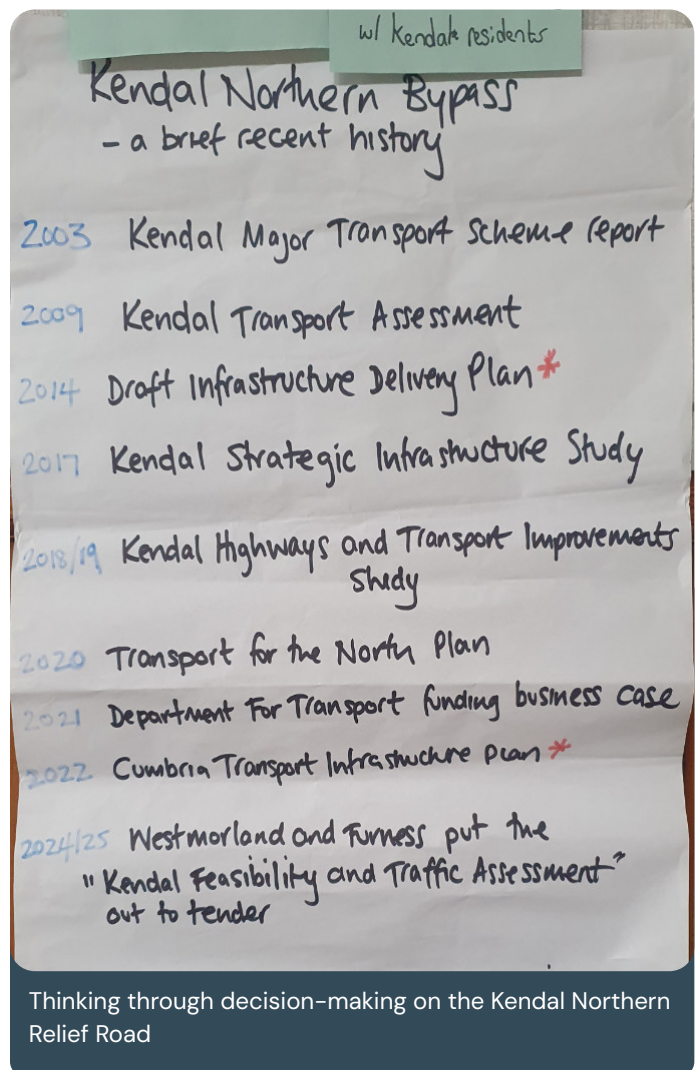 w/ Kendal residents
Kendal Northern Bypass
- a brief recent history
2003 Kendal Major Transport Scheme report
2009 Kendal Transport Assessment
2014 Draft Infrastructure Delivery Plan*
2017 Kendal Strategic Infrastructure Study
2018/19 Kendal Highways and Transport Improvements
Study
2020 Transport for the North Plan
2021 Department For Transport funding business case
2022 Cumbria Transport Infrastructure plan*
2024/25 Westmorland and Furness put the
"Kendal Feasibility and Traffic Assessment"
out to tender
Thinking through decision-making on the Kendal Northern
Relief Road